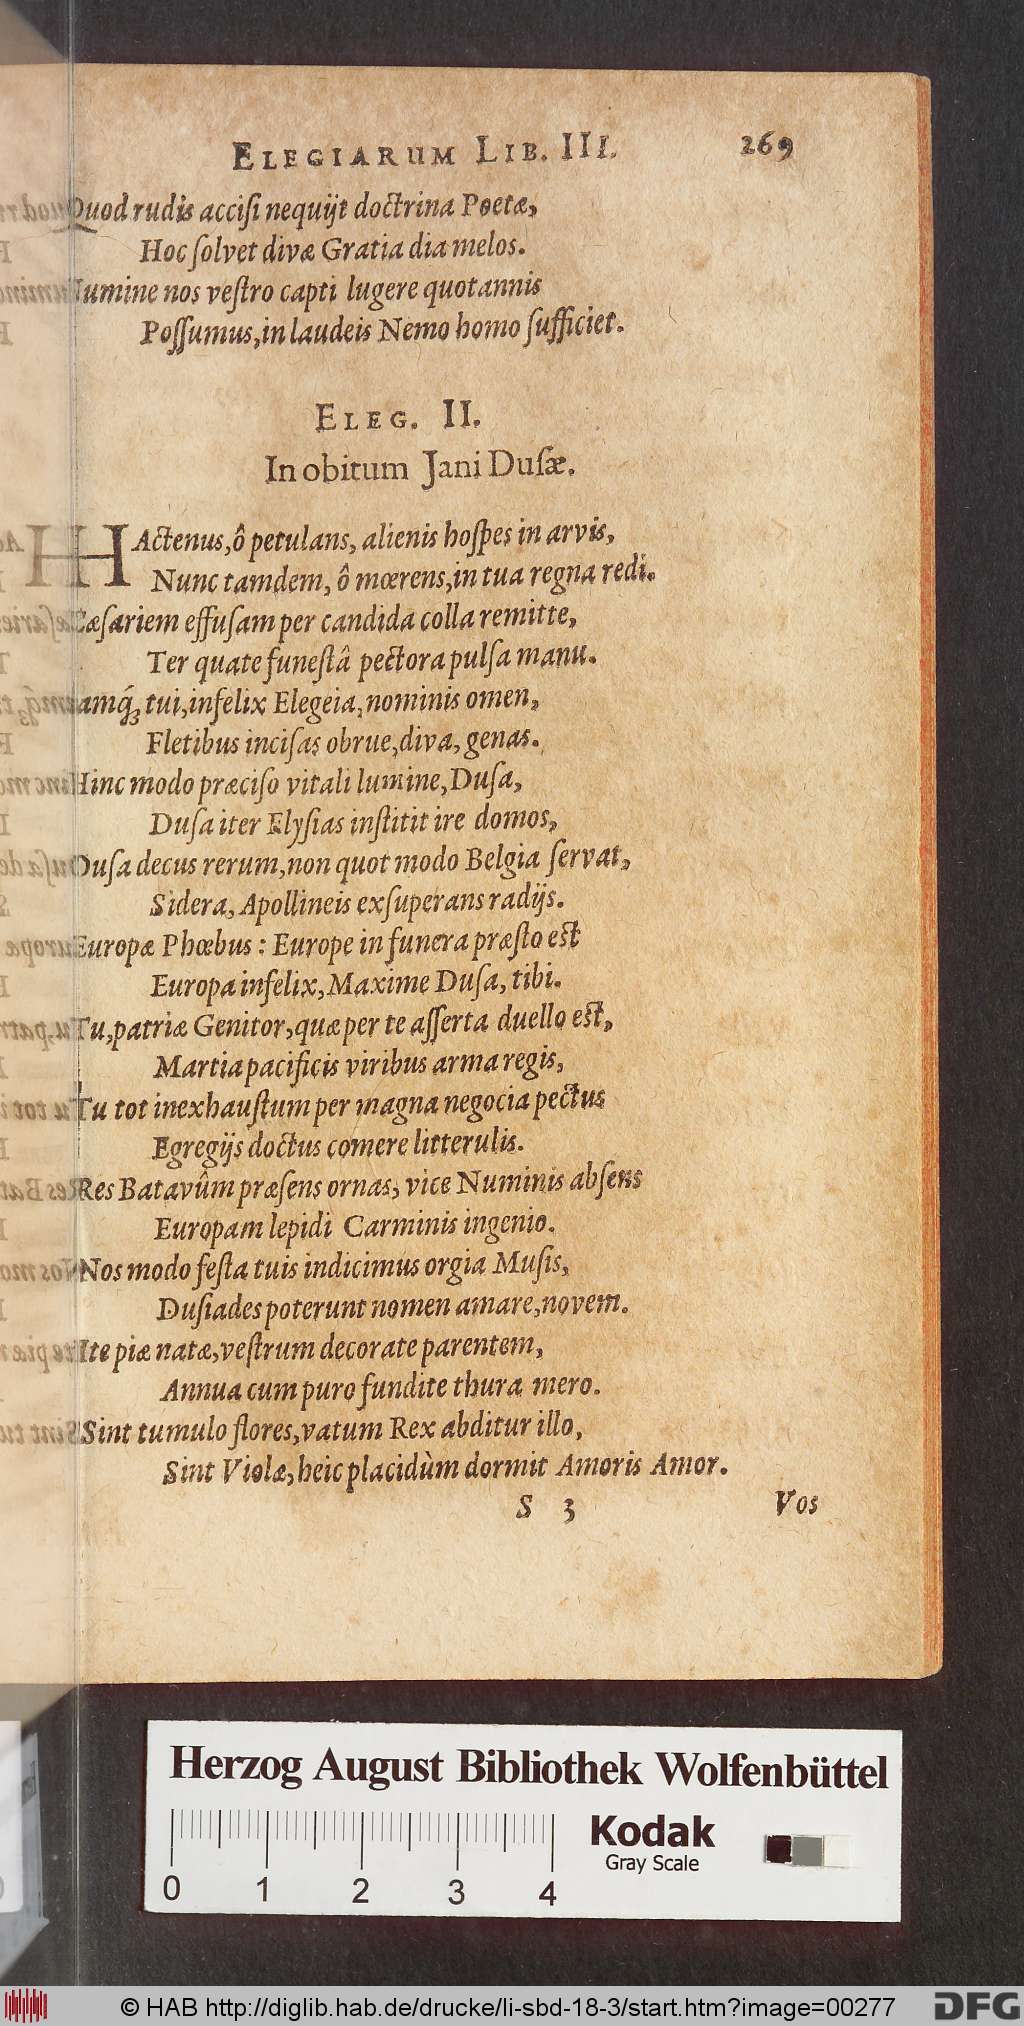 ELEGIARUM LIB. III. 269
Quod rudis accisi nequijt doctrina Poetæ,
Hoc solvet divæ Gratia dia melos.
Numine nos vestro capti lugere quotannis
Possumus, in laudeis Nemo homo sufficiet.
ELEG. II.
In obitum Jani Dusæ.
HActenus, ô petulans, alienis hospes in arvis,
Nunc tamdem, ô mœrens, in tua regna redi.
Cæsariem effusam per candida colla remitte,
Ter quate funestâ pectora pulsa manu.
amq́₃ tui, infelix Elegeia, nominis omen,
Fletibus incisas obrue, diva, genas.
Hinc modo præciso vitali lumine, Dusa,
Dusa iter Elysias institit ire domos,
Dusa decus rerum, non quot modo Belgia servat,
Sidera, Apollineis exsuperans radijs.
Europæ Phœbus : Europe in funera præsto est
Europa infelix, Maxime Dusa, tibi.
Tu, patriæ Genitor, quæ per te asserta duello est,
Martia pacificis viribus arma regis,
Tu tot inexhaustum per magna negocia pectus
Egregijs doctus comere litterulis.
Res Batavûm præsens ornas, vice Numinis absens
Europam lepidi Carminis ingenio.
Nos modo festa tuis indicimus orgia Musis,
Dusiades poterunt nomen amare, novem.
Ite piæ natæ, vestrum decorate parentem,
Annua cum puro fundite thura mero.
Sint tumulo flores, vatum Rex abditur illo,
Sint Violæ, heic placidùm dormit Amoris Amor.
S 3 Vos
Herzog August Bibliothek Wolfenbüttel
Kodak
Gray Scale
0 1 2 3 4
© HAB http://diglib.hab.de/drucke/li-sbd-18-3/start.htm?image=00277 DFG